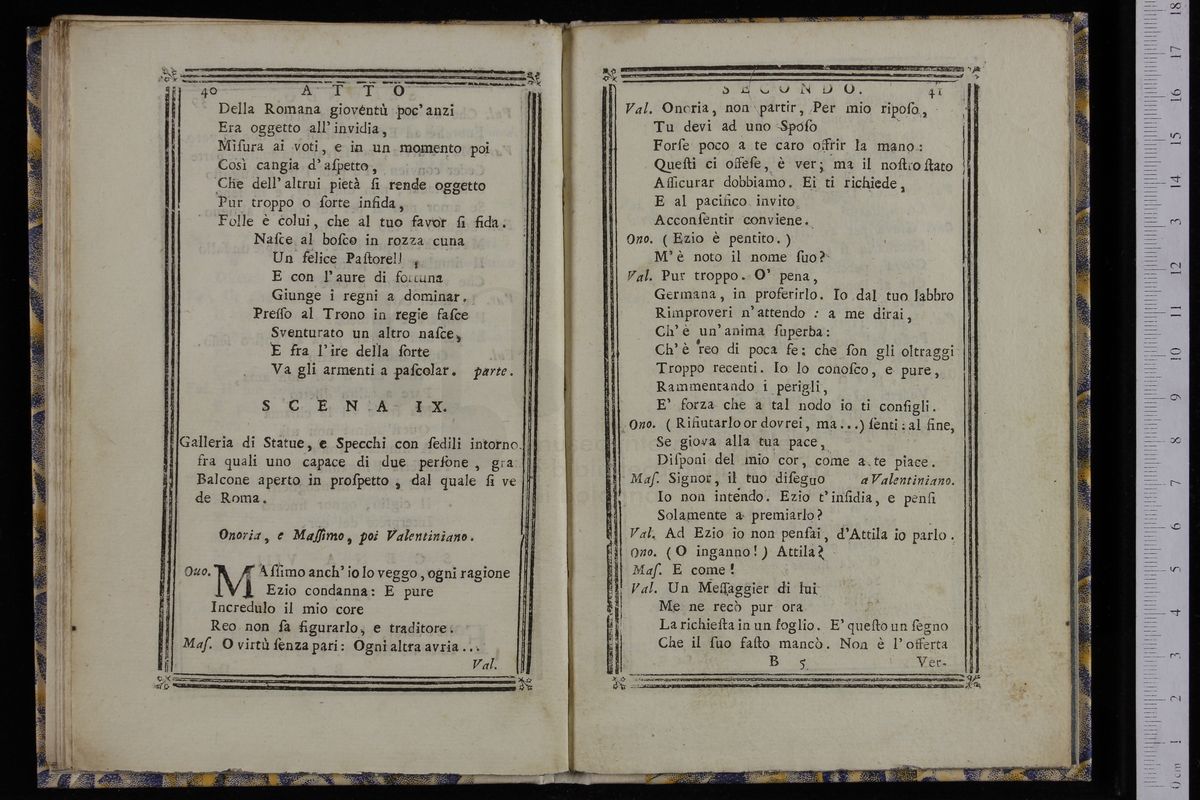 40 ATTO
Della Romana gioventù poc' anzi
Era oggetto all' invidia,
Miſura ai voti, e in un momento poi
Così cangia d' aſpetto,
Che dell' altrui pietà ſi rende oggetto
Pur troppo o ſorte infida,
Folle è colui, che al tuo favor ſi fida.
Naſce al boſco in rozza cuna
Un felice Paſtorell ,
E con l' aure di fortuna
Giunge i regni a dominar.
Preſſo al Trono in regie faſce
Sventurato un altro naſce,
E fra l' ire della ſorte
Va gli armenti a paſcolar. parte.
SCENA IX.
Galleria di Statue, e Specchi con ſedili intorno.
fra quali uno capace di due perſone , gra
Balcone aperto in proſpetto , dal quale ſi ve
de Roma.
Onoria, e Maſſimo, poi Valentiniano.
Ono. MAſſimo anch' io lo veggo, ogni ragione
Ezio condanna: E pure
Incredulo il mio core
Reo non ſa figurarlo, e traditore.
Maſ. O virtù ſenza pari: Ogni altra avria...
Val.
SECONDO. 41
Val. Onoria, non partir, Per mio ripoſo,
Tu devi ad uno Spoſo
Forſe poco a te caro offrir la mano:
Queſti ci offeſe, è ver; ma il noſtro ſtato
Aſſicurar dobbiamo. Ei ti richiede,
E al pacifico invito
Acconſentir conviene.
Ono. ( Ezio è pentito. )
M' è noto il nome ſuo?
Val. Pur troppo. O' pena,
Germana, in proferirlo. Io dal tuo labbro
Rimproveri n' attendo : a me dirai,
Ch' è un' anima ſuperba:
Ch' è reo di poca fe: che ſon gli oltraggi
Troppo recenti. Io lo conoſco, e pure,
Rammentando i perigli,
E' forza che a tal nodo io ti conſigli.
Ono. ( Rifiutarlo or dovrei, ma...) ſenti: al fine,
Se giova alla tua pace,
Diſponi del mio cor, come a te piace.
Maſ. Signor, il tuo diſegno a Valentiniano.
Io non inténdo. Ezio t' inſidia, e penſi
Solamente a premiarlo?
Val. Ad Ezio io non penſai, d'Attila io parlo.
Ono. ( O inganno! ) Attila?
Maſ. E come!
Val. Un Meſſaggier di lui
Me ne recò pur ora
La richieſta in un foglio. E' queſto un ſegno
Che il ſuo faſto mancò. Non è l' offerta
B 5 Ver-